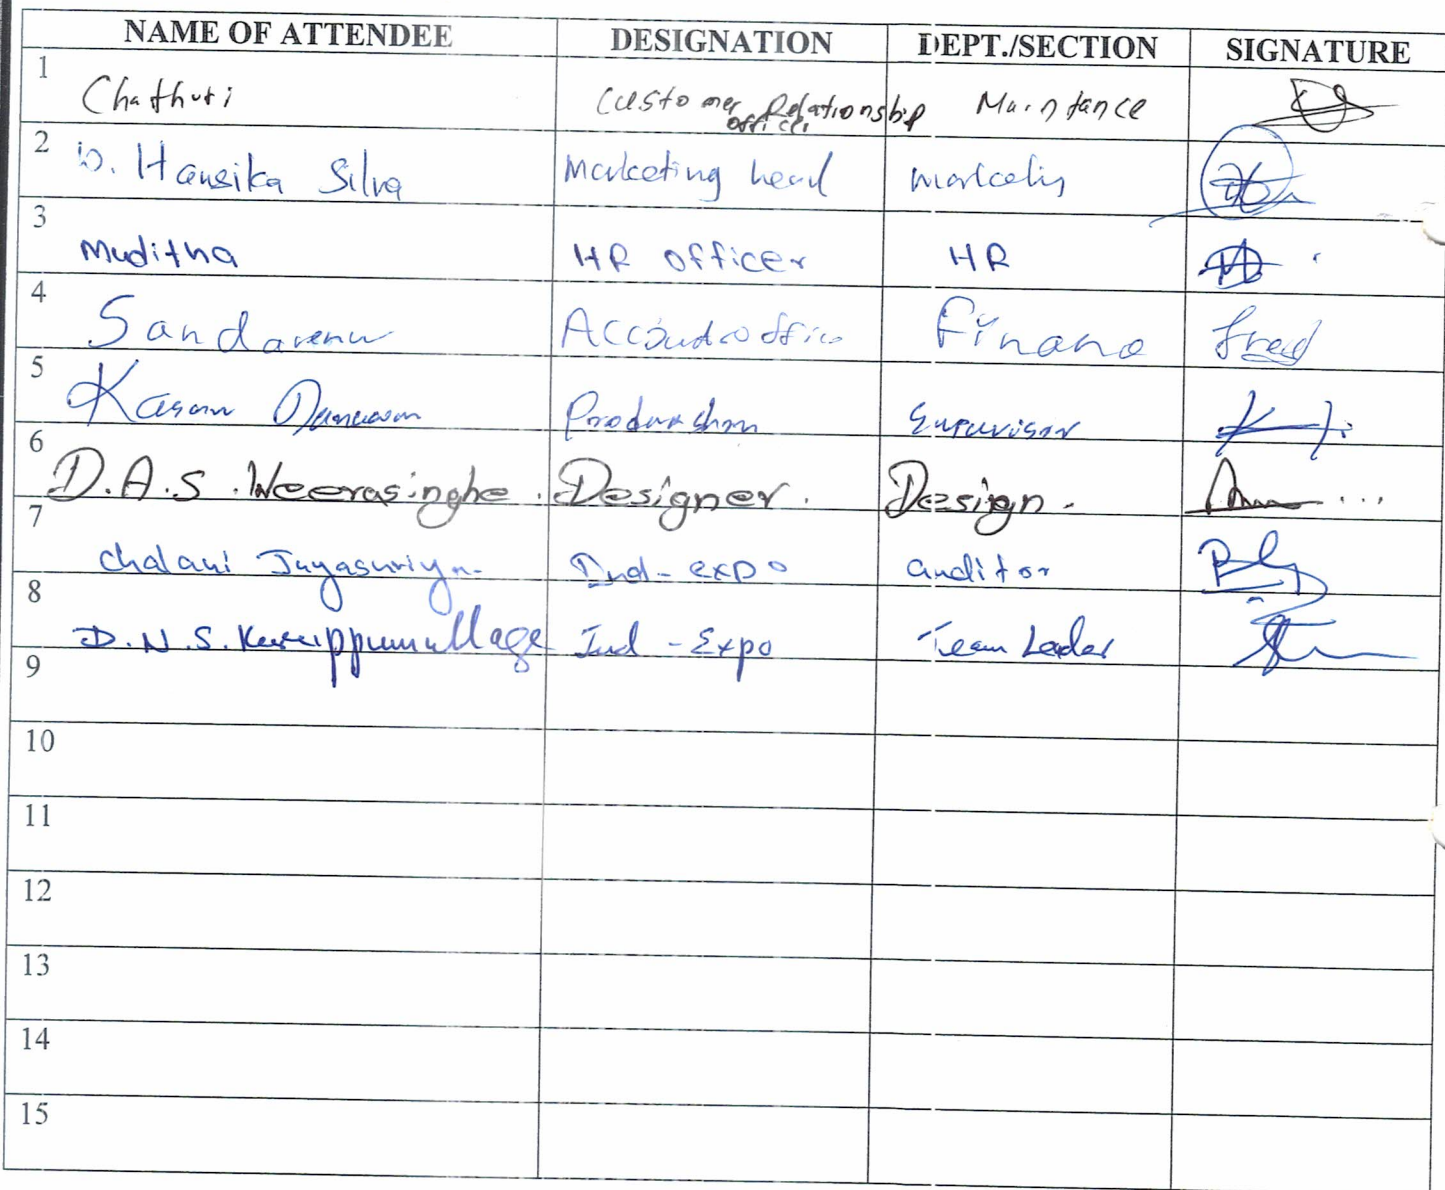 NAME OF ATTENDEE DESIGNATION DEPT./SECTION SIGNATURE
1 Chathuri Customer Relationship officer Maintance
2 W. Hansika Silva Marketing head
3 Muditha HR officer HR
4 Account officer
5 Kasun Supervisor
6 D.A.S. Weerasinghe. Designer. Design.
7 Chalani Jayasuriya Ind-expo auditor
8 D.N.S. Ind-Expo Team Leader
9
10
11
12
13
14
15